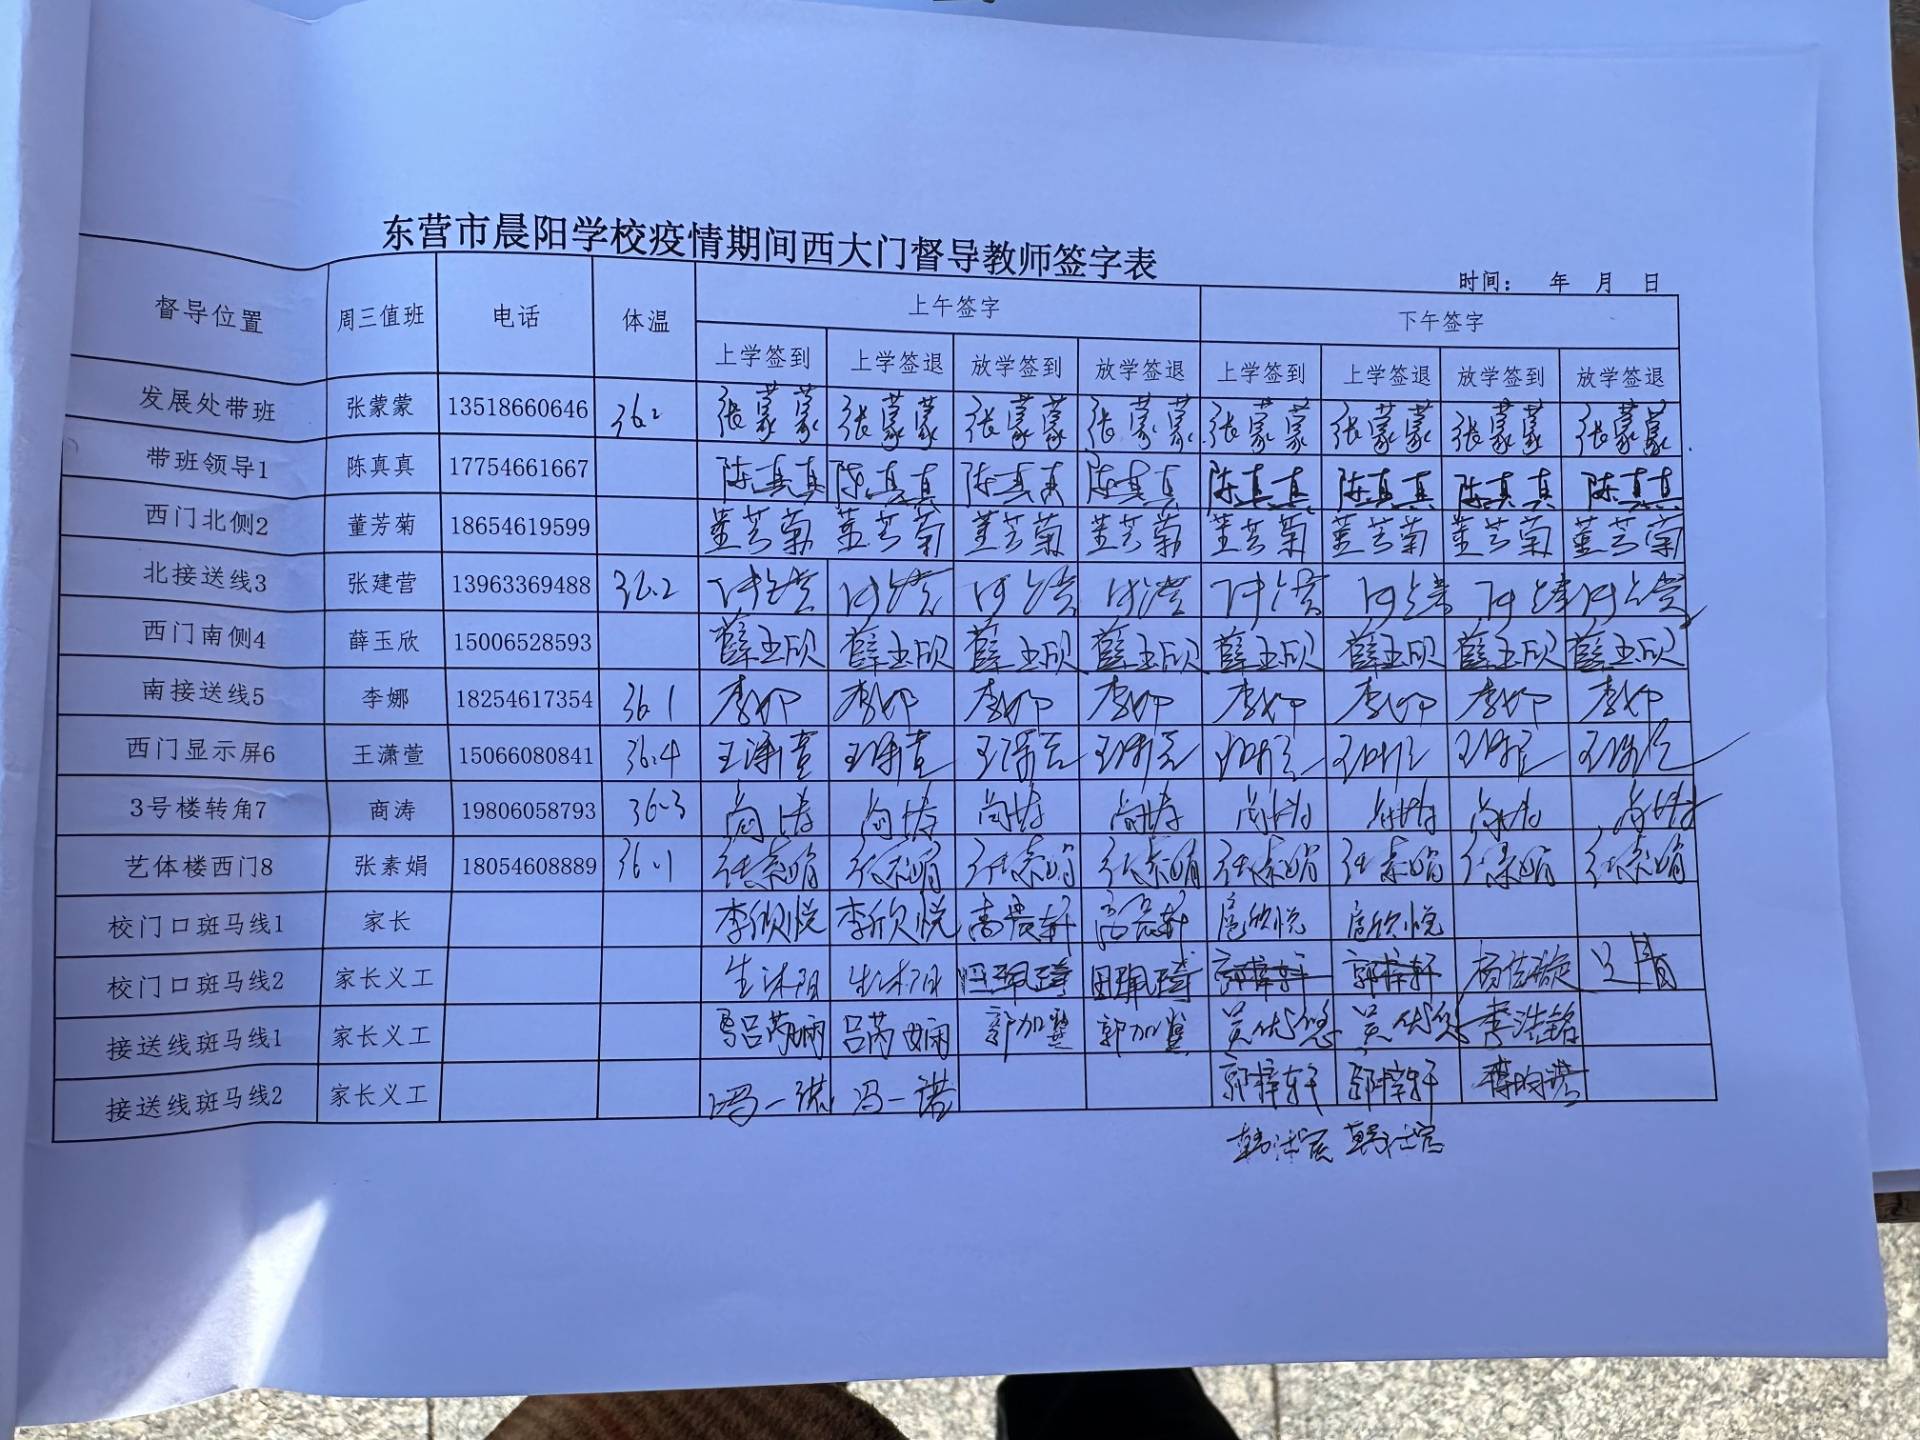 东营市晨阳学校疫情期间西大门督导教师签字表
时间： 年 月 日
督导位置 周三值班 电话 体温 上午签字 下午签字
上学签到 上学签退 放学签到 放学签退 上学签到 上学签退 放学签到 放学签退
发展处带班 张蒙蒙 13518660646 36.2 张蒙蒙 张蒙蒙 张蒙蒙 张蒙蒙 张蒙蒙 张蒙蒙 张蒙蒙 张蒙蒙
带班领导1 陈真真 17754661667 陈真真 陈真真 陈真真 陈真真 陈真真 陈真真 陈真真 陈真真
西门北侧2 董芳菊 18654619599 董芳菊 董芳菊 董芳菊 董芳菊 董芳菊 董芳菊 董芳菊 董芳菊
北接送线3 张建营 13963369488 36.2
西门南侧4 薛玉欣 15006528593 薛玉欣 薛玉欣 薛玉欣 薛玉欣 薛玉欣 薛玉欣 薛玉欣 薛玉欣
南接送线5 李娜 18254617354 36.1 李娜 李娜 李娜 李娜 李娜 李娜 李娜 李娜
西门显示屏6 王潇萱 15066080841 36.4 王潇萱 王潇萱 王潇萱 王潇萱 王潇萱 王潇萱 王潇萱 王潇萱
3号楼转角7 商涛 19806058793 36.3 商涛 商涛 商涛 商涛 商涛 商涛 商涛 商涛
艺体楼西门8 张素娟 18054608889 36.1 张素娟 张素娟 张素娟 张素娟 张素娟 张素娟 张素娟 张素娟
校门口斑马线1 家长 李欣悦 李欣悦 扈欣悦 扈欣悦
校门口斑马线2 家长义工 生沐阳 生沐阳 田珮琦 田珮琦 郭梓轩 郭梓轩
接送线斑马线1 家长义工 吕芮娴 吕芮娴 吴优悠 吴优悠 李浩铭
接送线斑马线2 家长义工 冯一诺 冯一诺 郭梓轩 郭梓轩